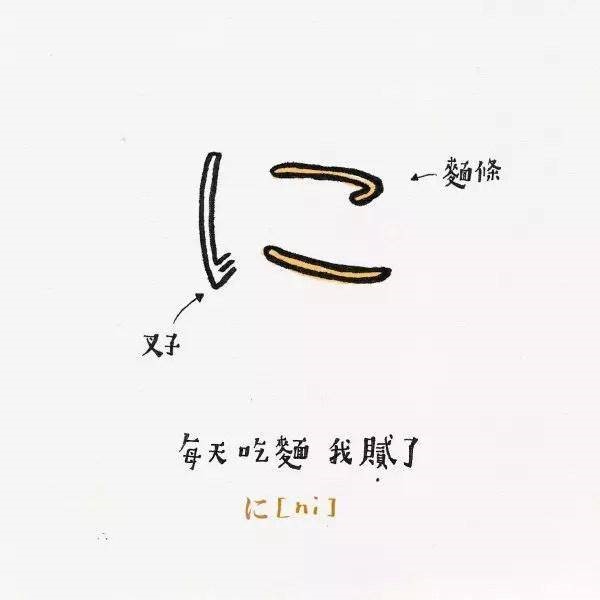 に
麵條
叉子
每天吃麵 我膩了
に[ni]